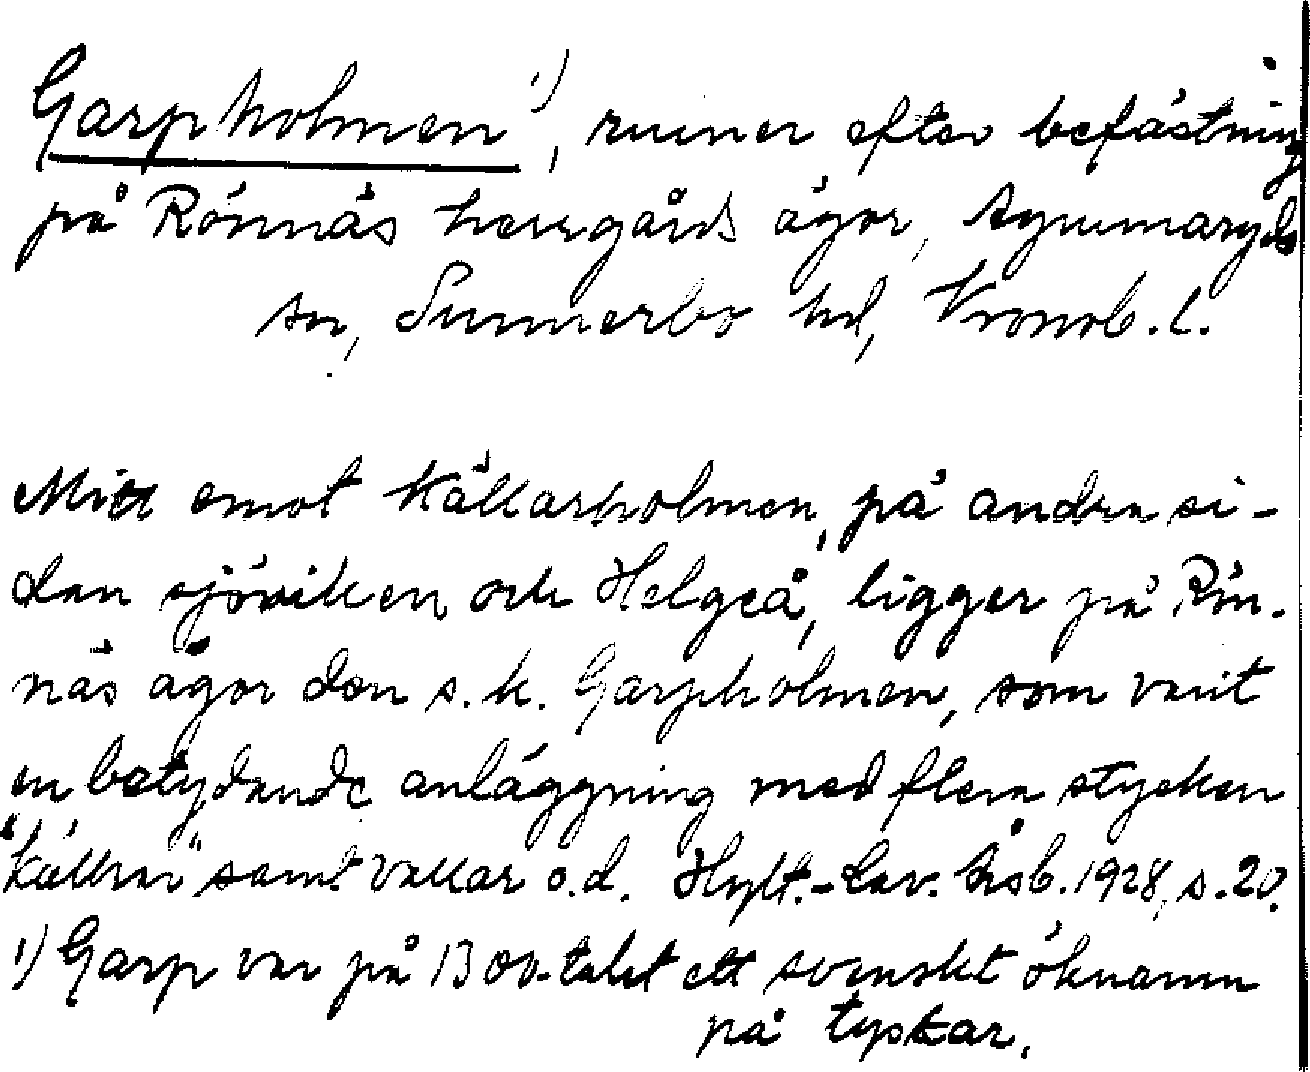 Garpholmen ¹⁾, ruiner efter befästning
på Rönnäs herrgårds ägor, Agunnaryds
sn, Sunnerbo hd, Kronob. l.
Mitt emot Källarholmen, på andra si-
dan sjöviken och Helgeå, ligger på Rön-
näs ägor den s.k. Garpholmen, som varit
en betydande anläggning med flera stycken
"källrar" samt vallar o.d. Hylt.-Cav. Årsb. 1928, s. 20.
¹⁾ Garp var på 1300-talet ett svenskt öknamn
på tyskar.